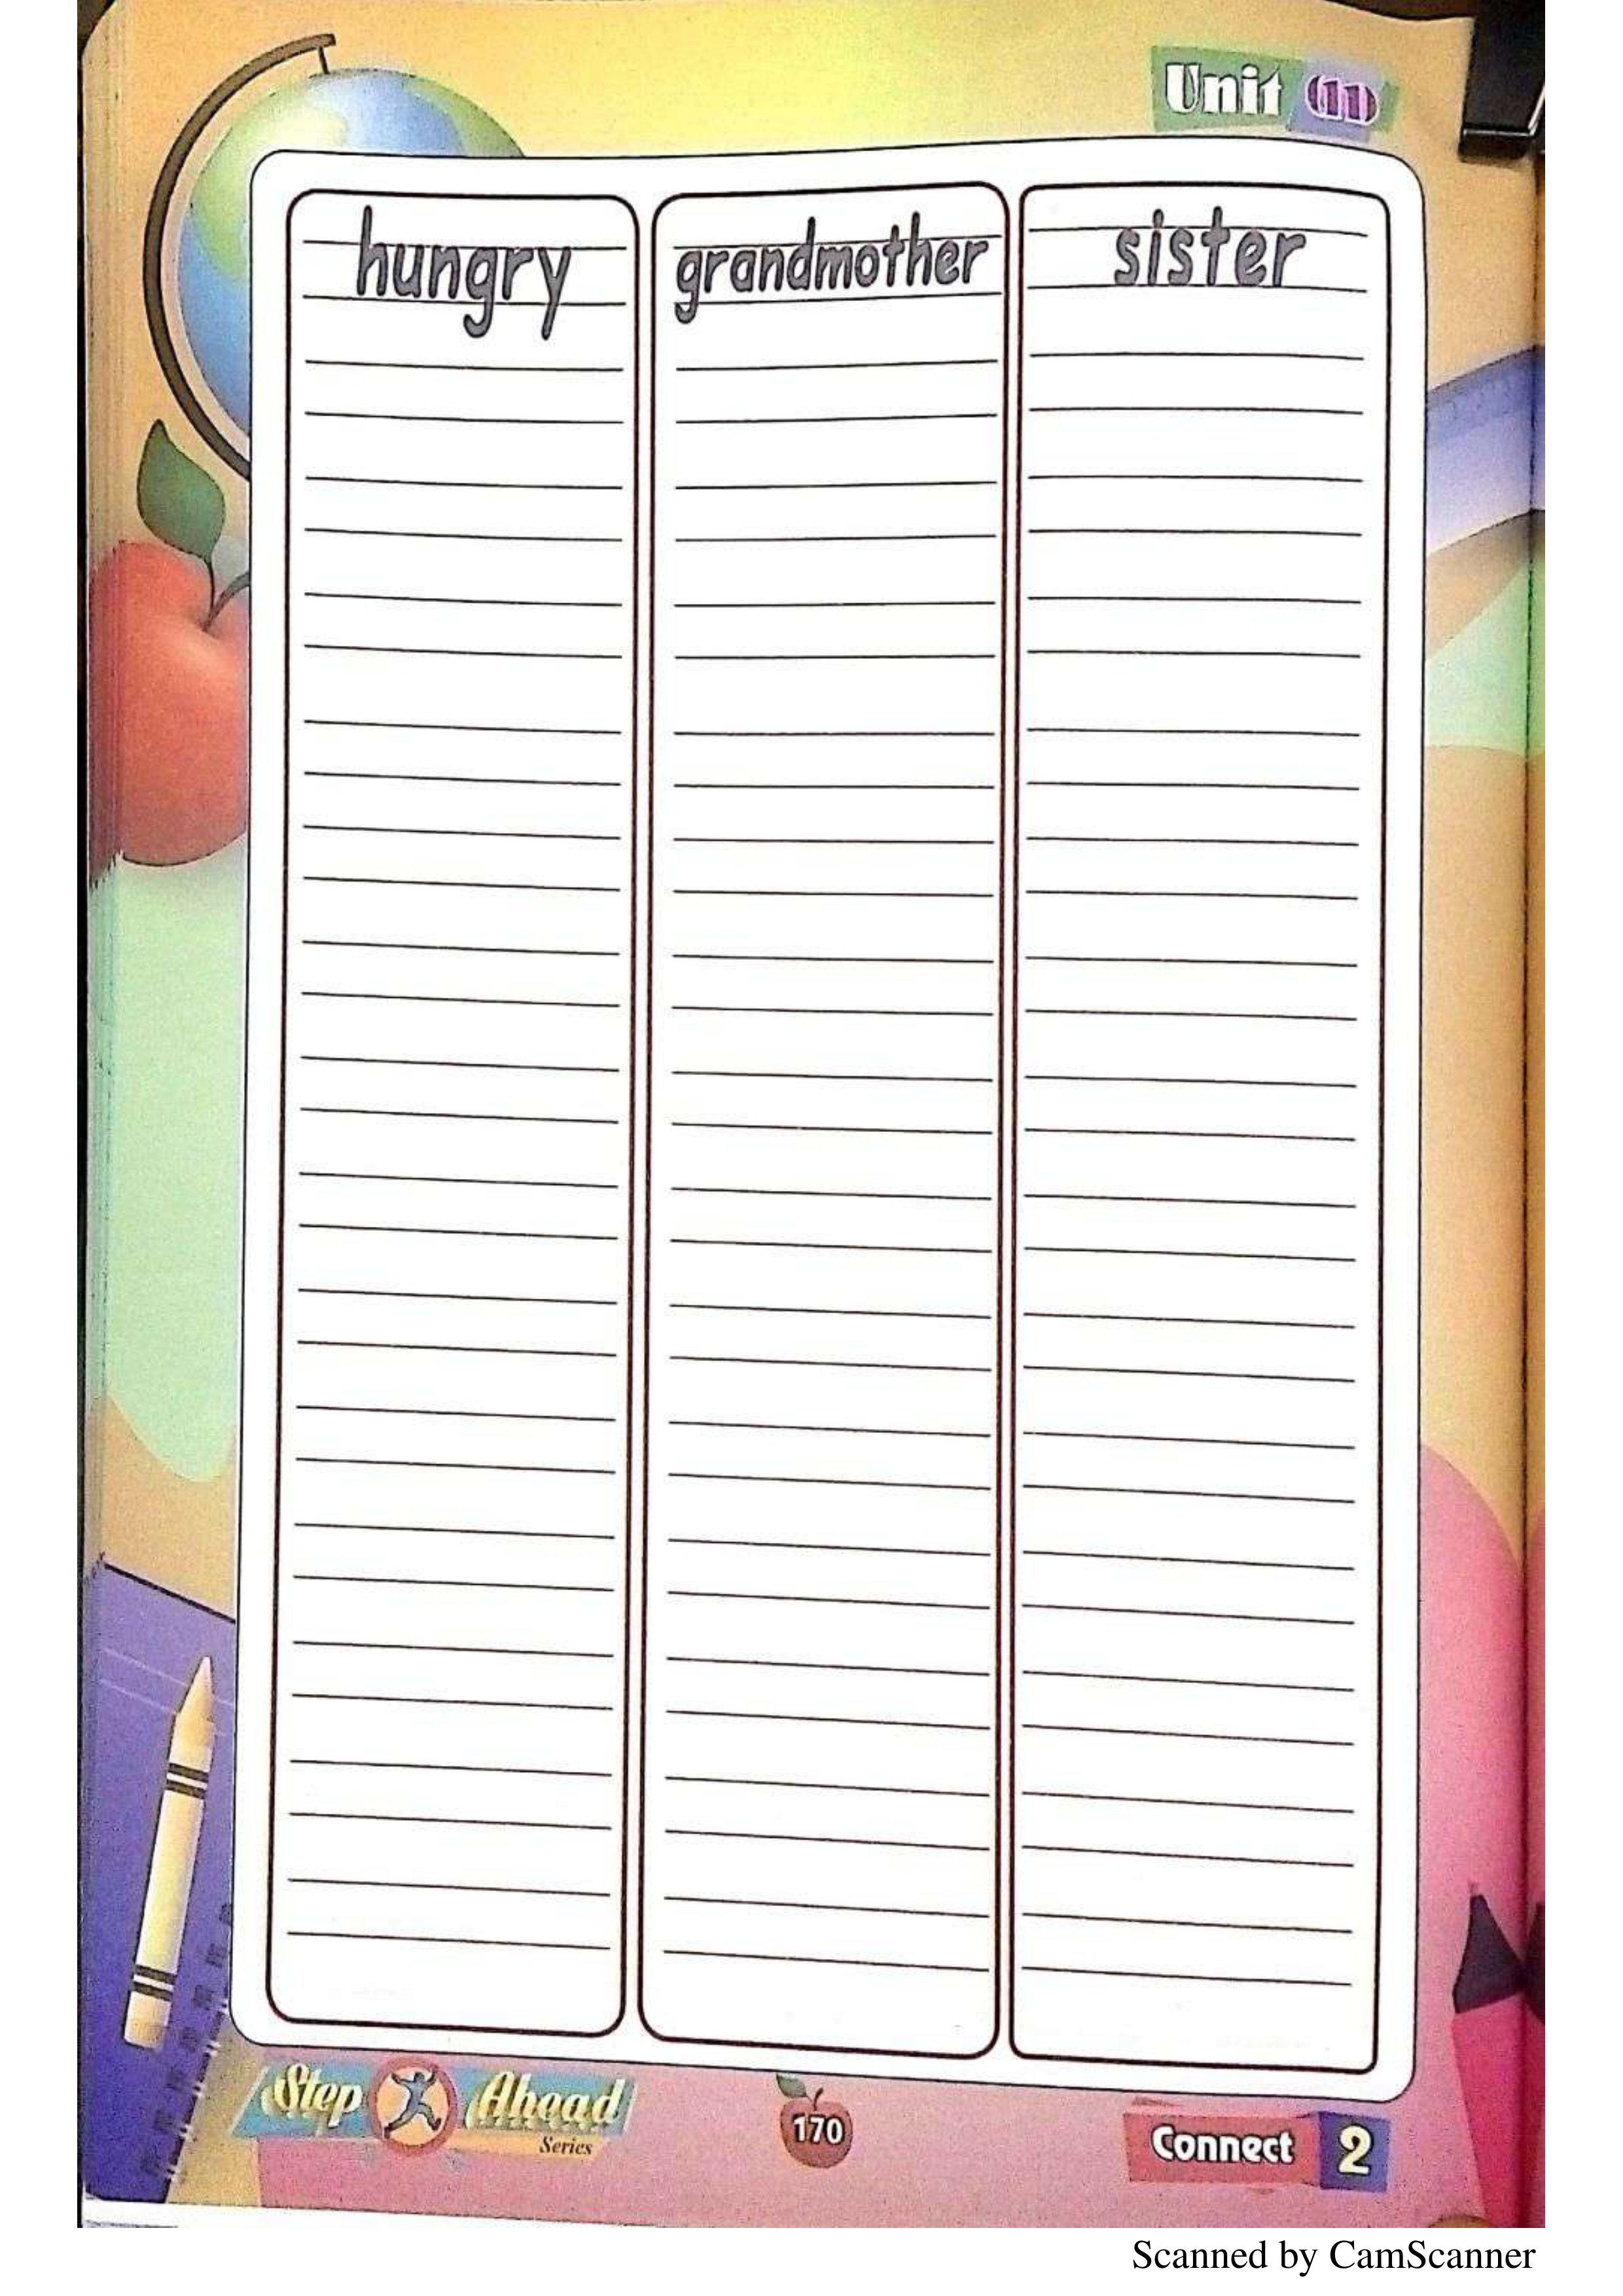 Unit (11)
hungry
grandmother
sister
Step Ahead
Series
170
Connect 2
Scanned by CamScanner